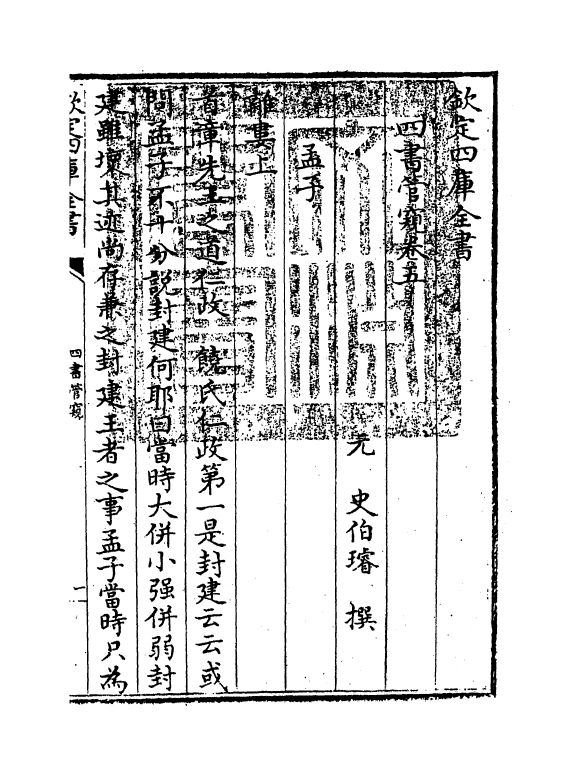 欽定四庫全書
四書管窺卷五
元　史伯璿　撰
孟子
離婁上
首章先王之道仁政　饒氏仁政第一是封建云云或
問孟子不十分說封建何耶曰當時大併小强併弱封
建雖壞其迹尚存兼之封建王者之事孟子當時只為
欽定四庫全書
四書管窺
一